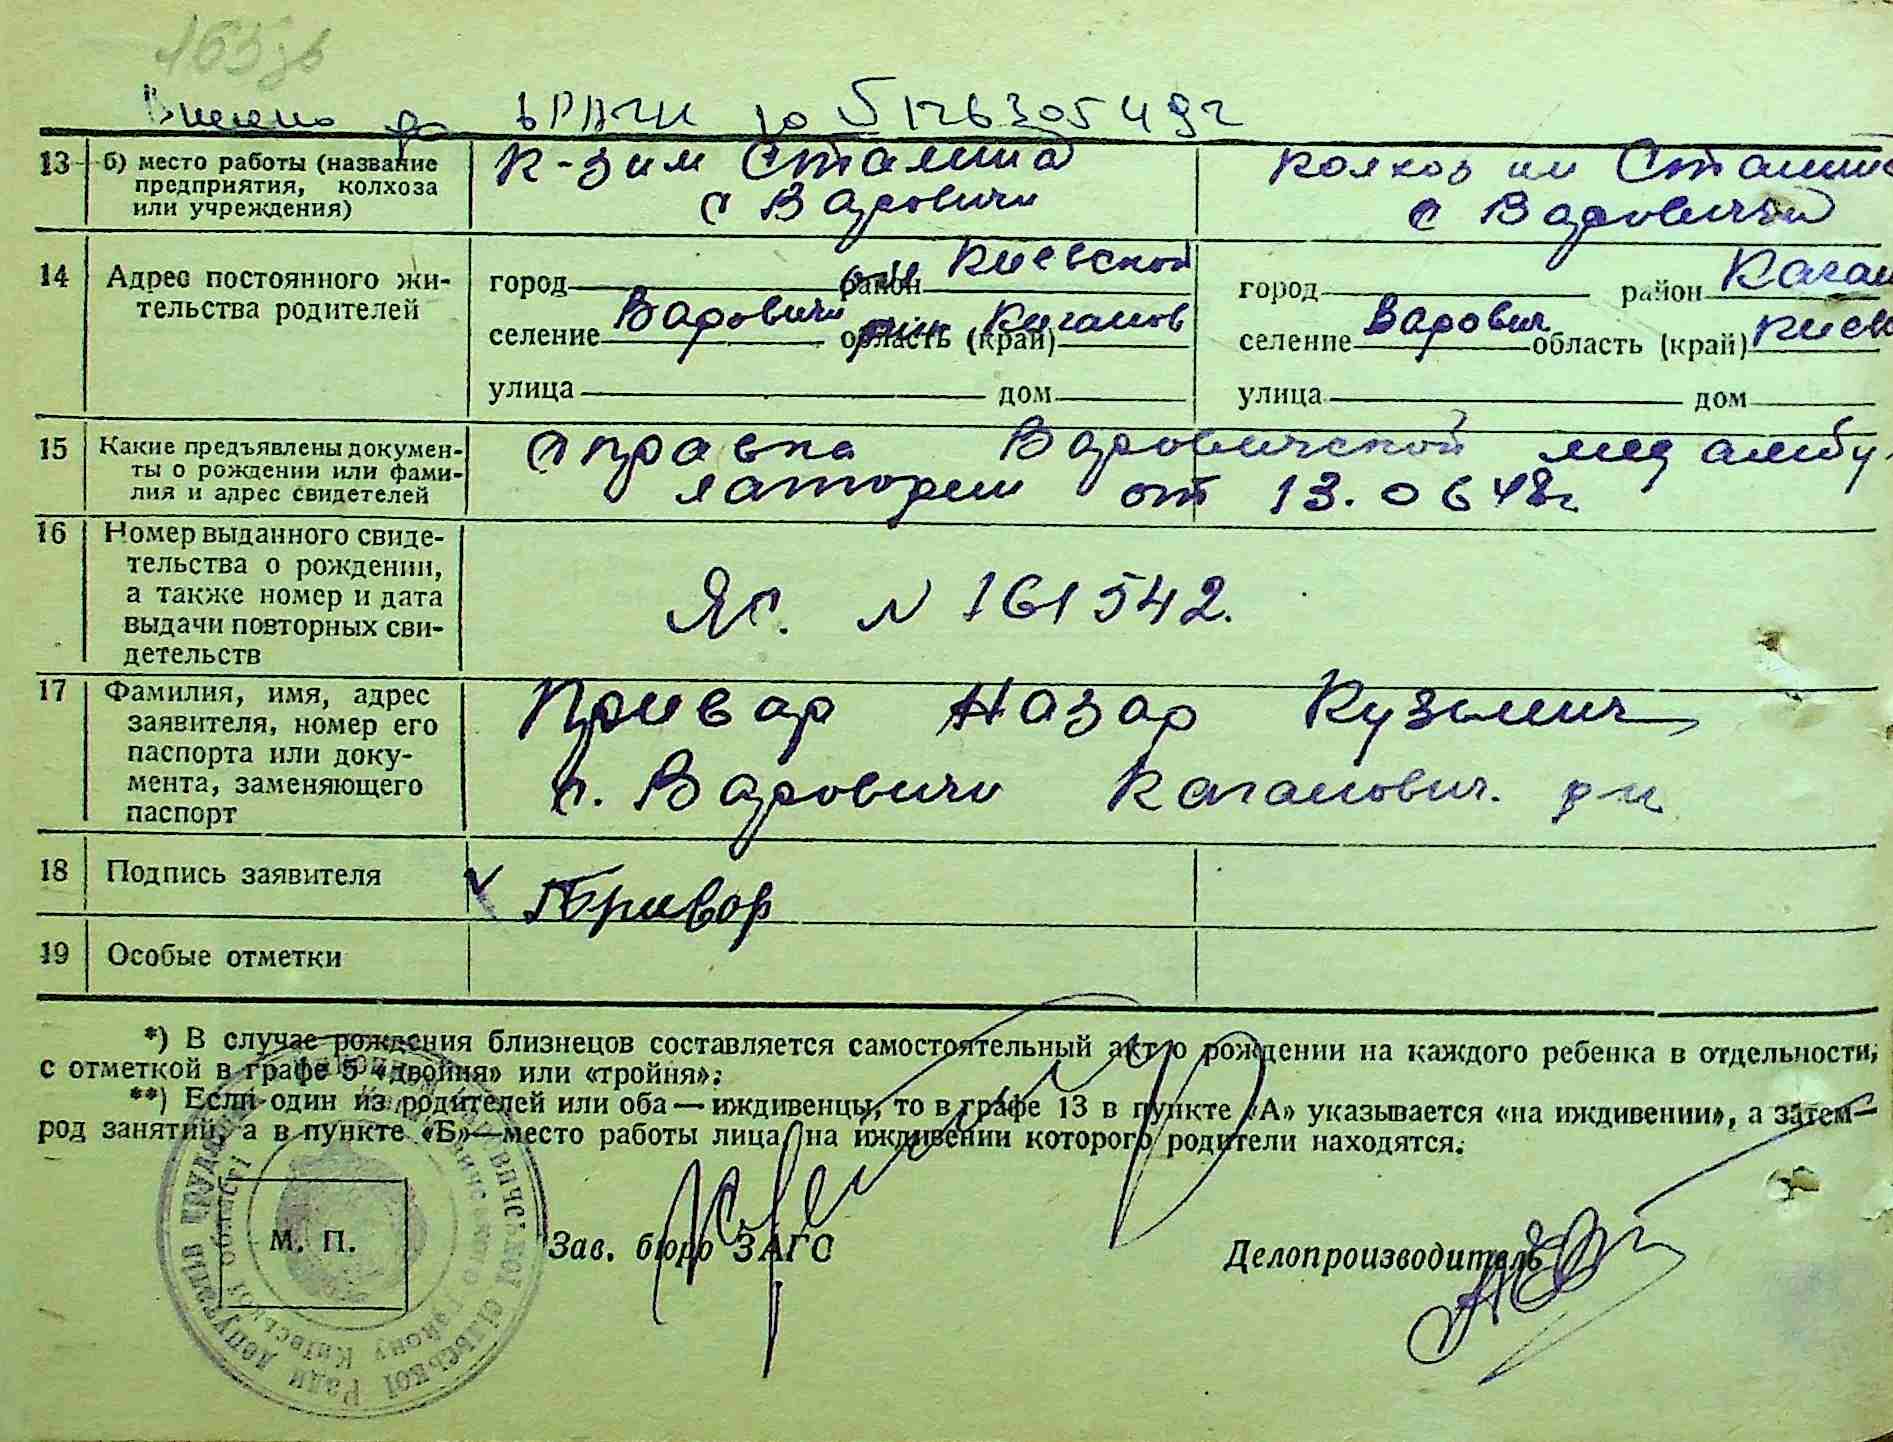 163зв
Внесено до ДРАЦС
13 б) место работы (название предприятия, колхоза или учреждения)
к-з им Сталина
с Варовичи
колхоз им Сталин
с Варовичи
14 Адрес постоянного жительства родителей
город район Киевской
селение Варовичи область (край) Каганов
улица дом
город район Каган
селение Варович область (край) Киев
улица дом
15 Какие предъявлены документы о рождении или фамилия и адрес свидетелей
справка Варовичской мед амбу-
латории от 13.06 48г
16 Номер выданного свидетельства о рождении, а также номер и дата выдачи повторных свидетельств
ЯС. N 161542.
17 Фамилия, имя, адрес заявителя, номер его паспорта или документа, заменяющего паспорт
Привар Назар Кузьмич
с. Варовичи Каганович. р-н
18 Подпись заявителя
Привар
19 Особые отметки
*) В случае рождения близнецов составляется самостоятельный акт о рождении на каждого ребенка в отдельности,
с отметкой в графе 5 «двойня» или «тройня»;
**) Если один из родителей или оба — иждивенцы, то в графе 13 в пункте «А» указывается «на иждивении», а затем—
род занятий, а в пункте «Б»—место работы лица, на иждивении которого родители находятся.
М. П.
Зав. бюро ЗАГС
Делопроизводитель